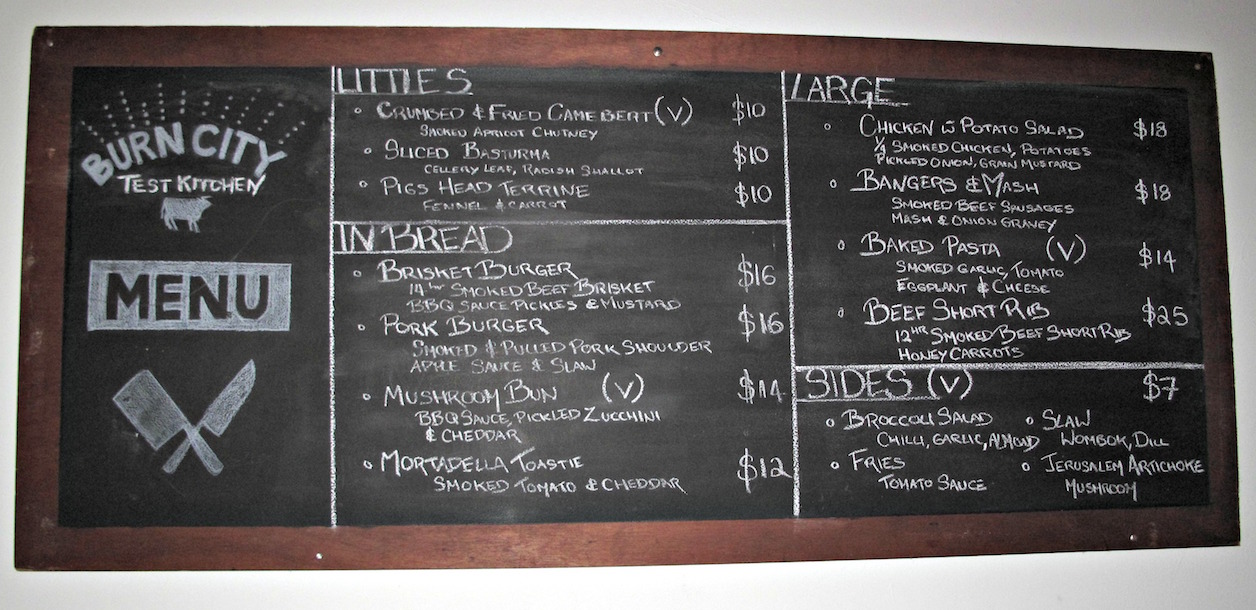 BURN CITY
TEST KITCHEN
MENU
LITTLES
CRUMBED & FRIED CAMEBERT (V) $10
SMOKED APRICOT CHUTNEY
SLICED BASTURMA $10
CELLERY LEAF, RADISH SHALLOT
PIGS HEAD TERRINE $10
FENNEL & CARROT
IN BREAD
BRISKET BURGER $16
14 HR SMOKED BEEF BRISKET
BBQ SAUCE PICKLES & MUSTARD
PORK BURGER $16
SMOKED & PULLED PORK SHOULDER
APPLE SAUCE & SLAW
MUSHROOM BUN (V) $14
BBQ SAUCE, PICKLED ZUCCHINI
& CHEDDAR
MORTADELLA TOASTIE $12
SMOKED TOMATO & CHEDDAR
LARGE
CHICKEN W POTATO SALAD $18
1/4 SMOKED CHICKEN, POTATOES
PICKLED ONION, GRAIN MUSTARD
BANGERS & MASH $18
SMOKED BEEF SAUSAGES
MASH & ONION GRAVEY
BAKED PASTA (V) $14
SMOKED GARLIC, TOMATO
EGGPLANT & CHEESE
BEEF SHORT RIB $25
12HR SMOKED BEEF SHORT RIB
HONEY CARROTS
SIDES (V) $7
BROCCOLI SALAD
CHILLI, GARLIC, ALMOND
SLAW
WOMBOK, DILL
FRIES
TOMATO SAUCE
JERUSALEM ARTICHOKE
MUSHROOM